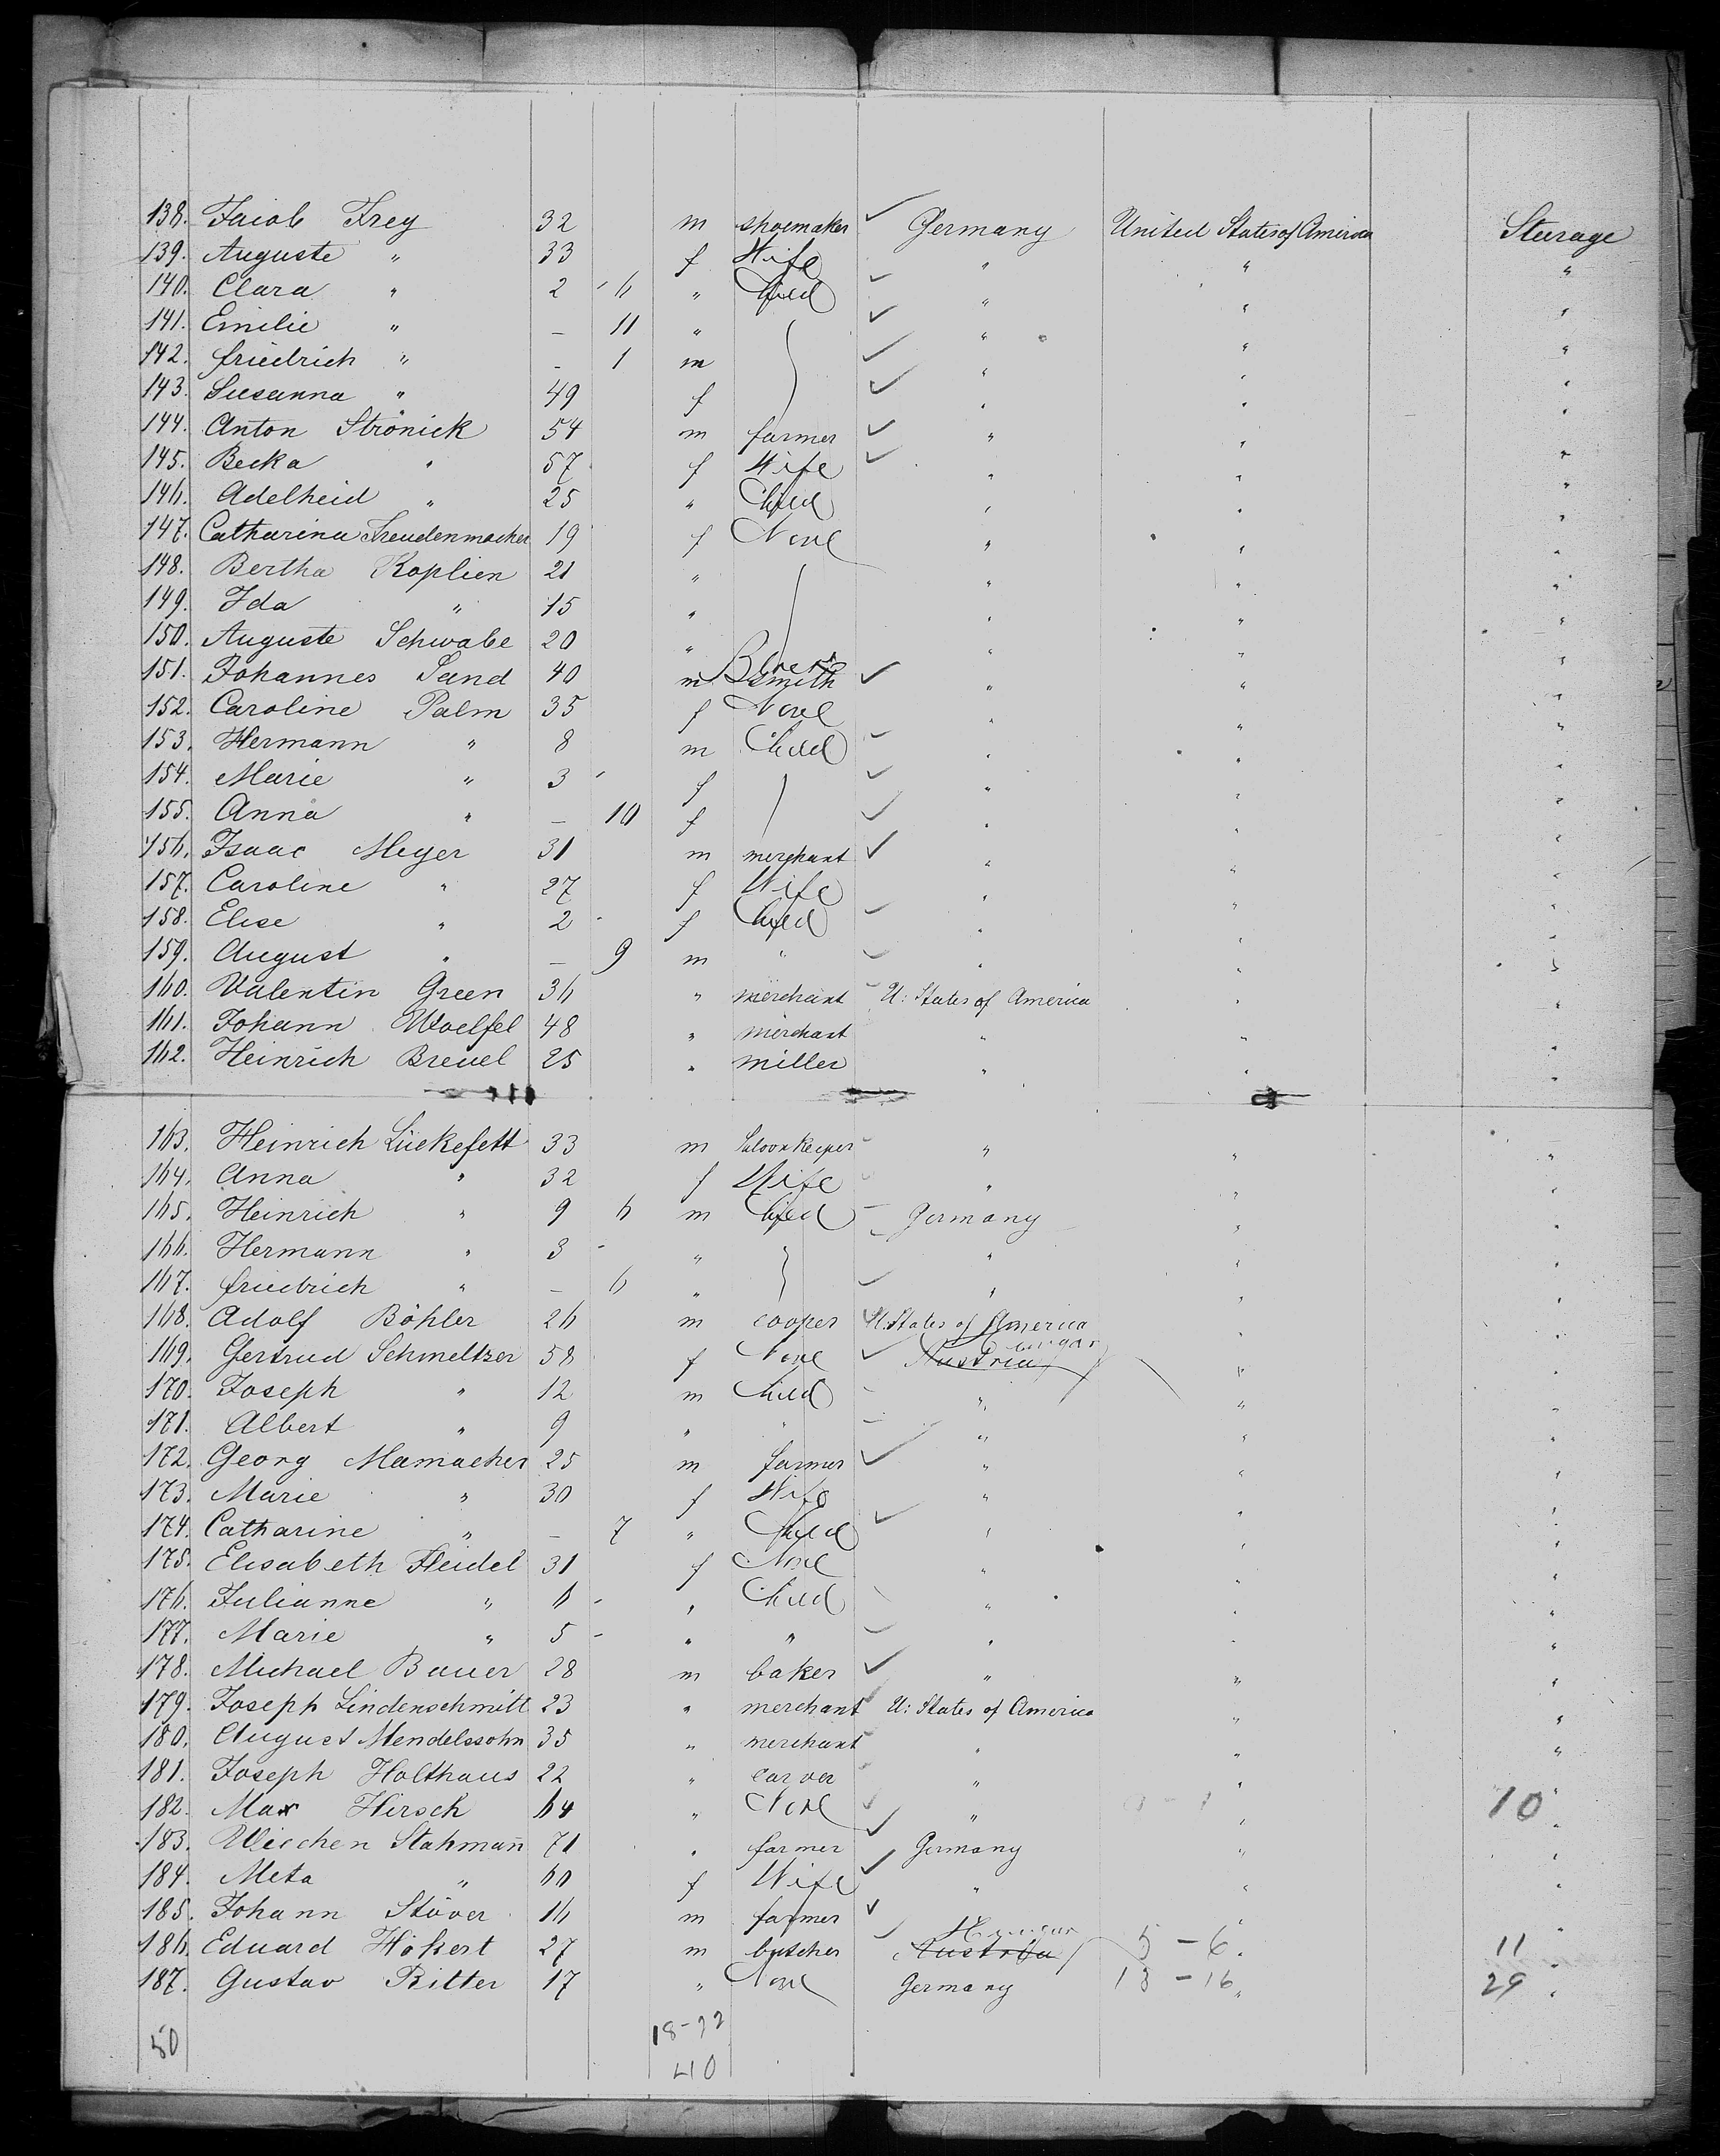 138. Jaiob Frey 32 m shoemaker Germany United States of America Sturage
139. Auguste " 33 f Wife " " "
140. Clara " 2 6 " Child " " "
141. Emilie " – 11 " " " "
142. friedrich " – 1 m " " "
143. Susanna " 49 f " " "
144. Anton Strönick 54 m farmer " " "
145. Becka " 57 f Wife " " "
146. Adelheid " 25 " Child " " "
147. Catharina Freudenmacher 19 f None " " "
148. Bertha Koplien 21 " " " "
149. Ida " 15 " " " "
150. Auguste Schwabe 20 " " " "
151. Johannes Sand 40 m smith " " "
152. Caroline Palm 35 f None " " "
153. Hermann " 8 m Child " " "
154. Marie " 3 f " " "
155. Anna " – 10 f " " "
156. Isaac Meyer 31 m merchant " " "
157. Caroline " 27 f Wife " " "
158. Elise " 2 f Child " " "
159. August " – 9 m " " " "
160. Valentin Green 36 " merchant U: States of America " "
161. Johann Woelfel 48 " merchant " " "
162. Heinrich Breuel 25 " miller " " "
163. Heinrich Lückefett 33 m Saloonkeeper " " "
164. Anna " 32 f Wife " " "
165. Heinrich " 9 6 m Child Germany " "
166. Hermann " 3 " " " "
167. friedrich " – 6 " " " "
168. Adolf Böhler 26 m cooper U. States of America " "
169. Gertrud Schmeltzer 58 f None Austria " "
170. Joseph " 12 m Child " " "
171. Albert " 9 " " " " "
172. Georg Mamacher 25 m farmer " " "
173. Marie " 30 f Wife " " "
174. Catharine " – 7 " Child " " "
175. Elisabeth Heidel 31 f None " " "
176. Julianne " 6 " Child " " "
177. Marie " 5 " " " " "
178. Michael Bauer 28 m baker " " "
179. Joseph Lindenschmitt 23 " merchant U: States of America " "
180. August Mendelssohn 35 " merchant " " "
181. Joseph Holthaus 22 " carver " " "
182. Max Hirsch 64 " None " " 10 "
183. Wischen Stahmañ 71 " farmer Germany " "
184. Meta " 60 f Wife " " "
185. Johann Stüver 16 m farmer " "
186. Eduard Hökert 27 m butcher Austria 5 – 6. 11 "
187. Gustav Ritter 17 " None Germany 13 – 16 " 29 "
50 18-22
40